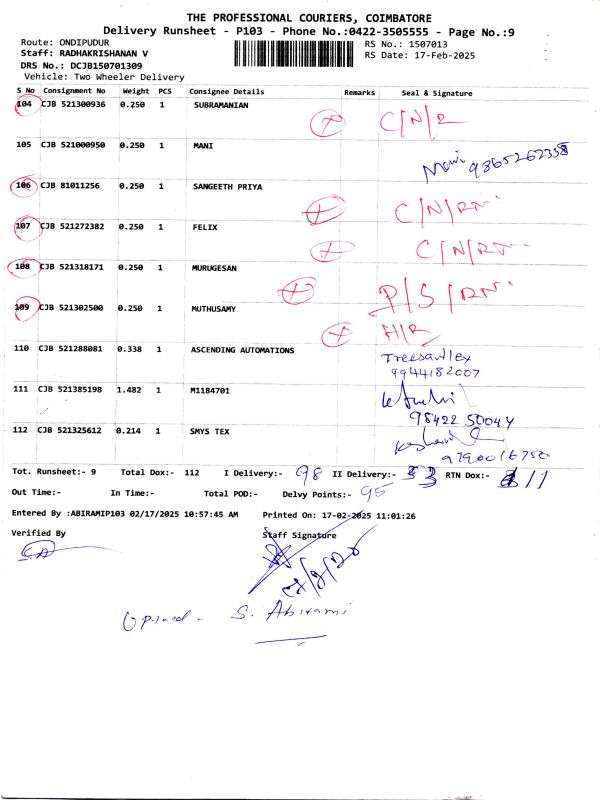 THE PROFESSIONAL COURIERS, COIMBATORE
Delivery Runsheet - P103 - Phone No.:0422-3505555 - Page No.:9
Route: ONDIPUDUR RS No.: 1507013
Staff: RADHAKRISHANAN V RS Date: 17-Feb-2025
DRS No.: DCJB150701309
Vehicle: Two Wheeler Delivery
S No Consignment No Weight PCS Consignee Details Remarks Seal & Signature
104 CJB 521300936 0.250 1 SUBRAMANIAN C/N/R
105 CJB 521000950 0.250 1 MANI Mani 9865262358
106 CJB 81011256 0.250 1 SANGEETH PRIYA C/N/RN
107 CJB 521272382 0.250 1 FELIX C/N/RN
108 CJB 521318171 0.250 1 MURUGESAN P/S/RN
109 CJB 521302500 0.250 1 MUTHUSAMY H/R
110 CJB 521288081 0.338 1 ASCENDING AUTOMATIONS
9944182007
111 CJB 521385198 1.482 1 M1184701
98422 50044
112 CJB 521325612 0.214 1 SMYS TEX
9790016750
Tot. Runsheet:- 9 Total Dox:- 112 I Delivery:- 98 II Delivery:- 3 RTN Dox:- 11
Out Time:- In Time:- Total POD:- Delvy Points:- 95
Entered By :ABIRAMIP103 02/17/2025 10:57:45 AM Printed On: 17-02-2025 11:01:26
Verified By Staff Signature
S. Abirami